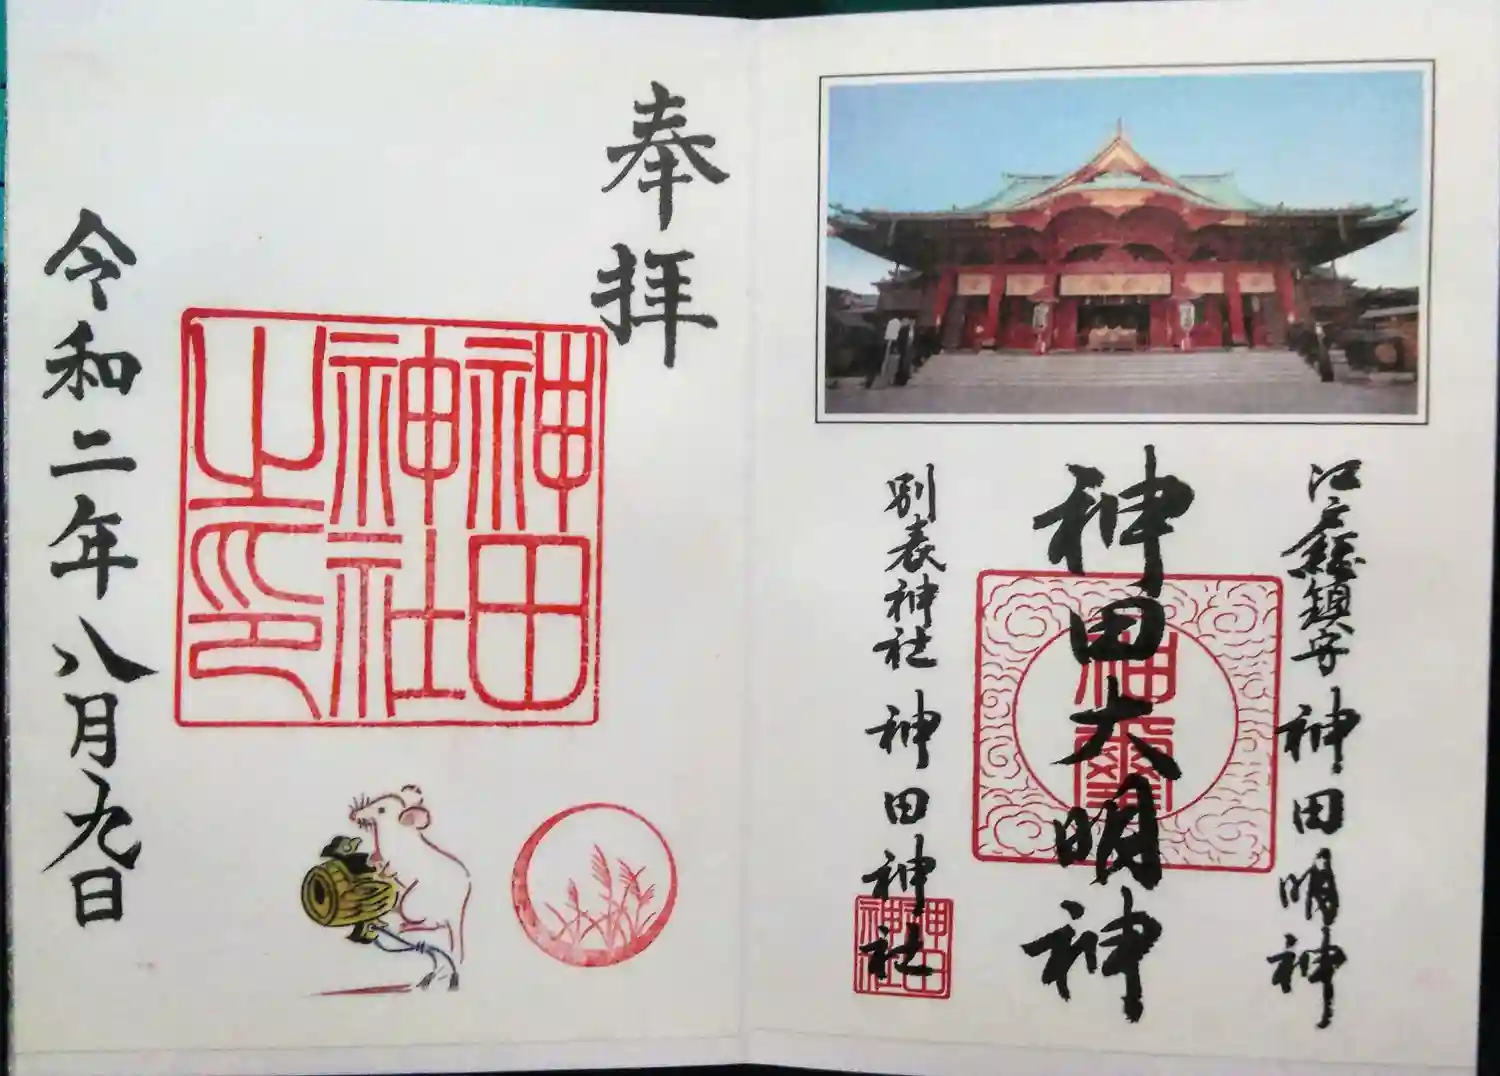 江戸総鎮守 神田明神
神田大明神
神璽
別表神社 神田神社
神田
神社
奉拝
神田
神社
之印
令和二年八月九日